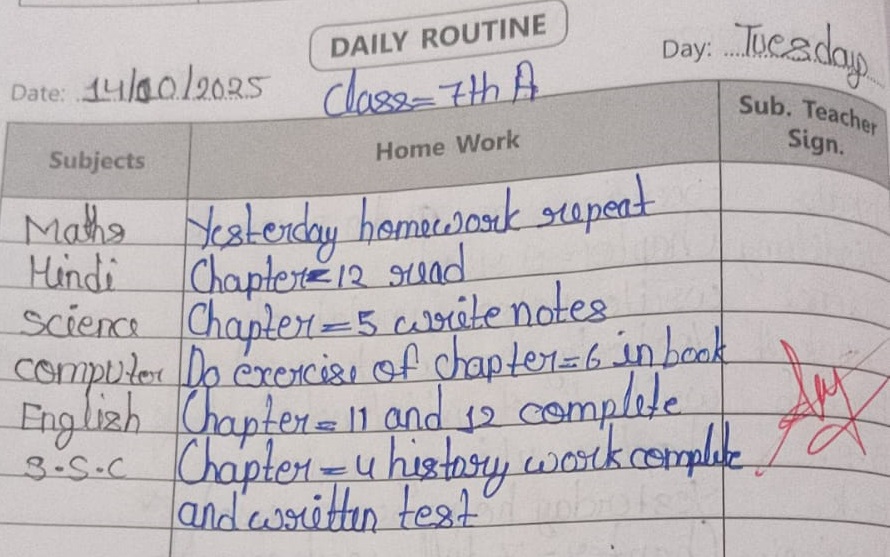 DAILY ROUTINE
Date: 14/10/2025 Day: Tuesday
Class=7th A
Subjects Home Work Sub. Teacher Sign.
Maths Yesterday homework repeat
Hindi Chapter=12 read
Science Chapter=5 write notes
computer Do exercise of chapter=6 in book
English Chapter=11 and 12 complete
S.S.C Chapter=4 history work complete
and written test